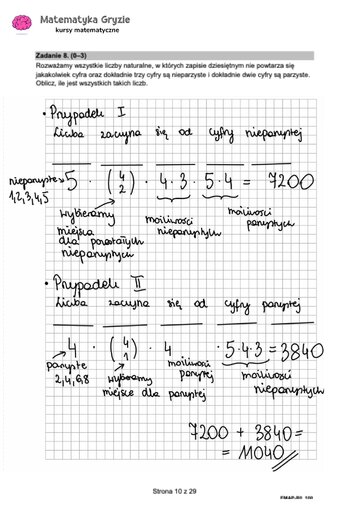 Matematyka Gryzie
kursy matematyczne
Zadanie 8. (0–3)
Rozważamy wszystkie liczby naturalne, w których zapisie dziesiętnym nie powtarza się
jakakolwiek cyfra oraz dokładnie trzy cyfry są nieparzyste i dokładnie dwie cyfry są parzyste.
Oblicz, ile jest wszystkich takich liczb.
• Przypadek I
Liczba zaczyna się od cyfry nieparzystej
5 · (4 2) · 4·3 · 5·4 = 7200
nieparzyste
1,2,3,4,5
wybieramy miejsca dla pozostałych nieparzystych
możliwości nieparzystych
możliwości parzystych
• Przypadek II
Liczba zaczyna się od cyfry parzystej
4 · (4 1) · 4 · 5·4·3 = 3840
parzyste
2,4,6,8
wybieramy miejsce dla parzystej
możliwości parzystej
możliwości nieparzystych
7200 + 3840 =
= 11040
Strona 10 z 29